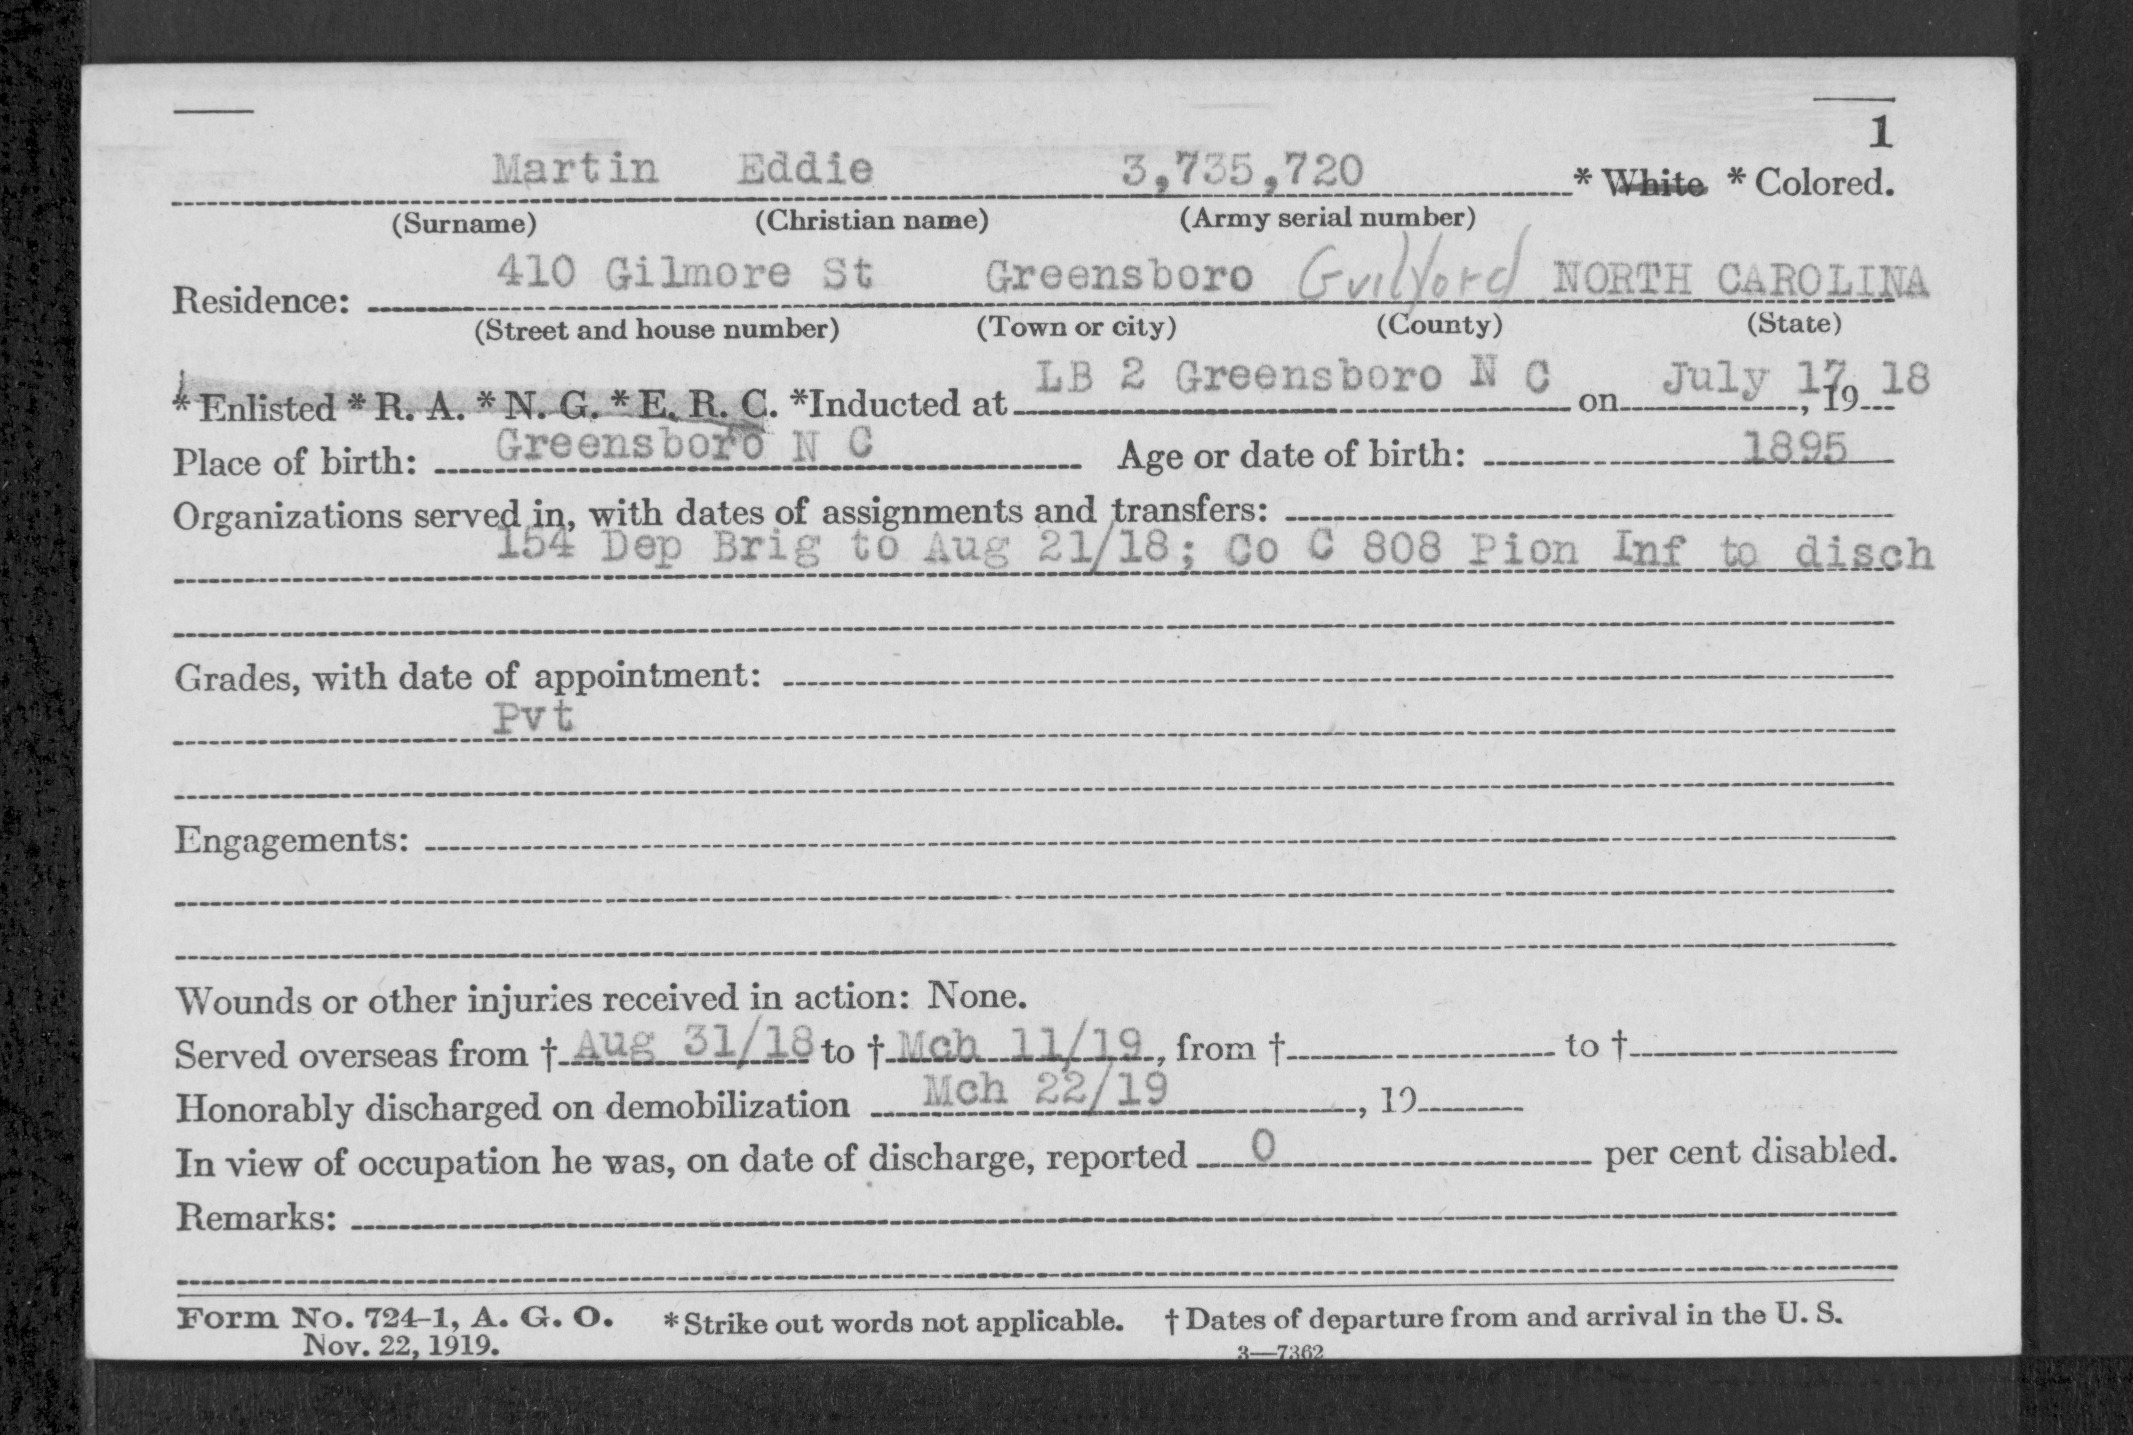 1
Martin Eddie 3,735,720 * White * Colored.
(Surname) (Christian name) (Army serial number)
Residence: 410 Gilmore St Greensboro Guilford NORTH CAROLINA
(Street and house number) (Town or city) (County) (State)
* Enlisted * R. A. * N. G. * E. R. C. *Inducted at LB 2 Greensboro N C on July 17, 1918
Place of birth: Greensboro N C Age or date of birth: 1895
Organizations served in, with dates of assignments and transfers:
154 Dep Brig to Aug 21/18; Co C 808 Pion Inf to disch
Grades, with date of appointment:
Pvt
Engagements:
Wounds or other injuries received in action: None.
Served overseas from † Aug 31/18 to † Mch 11/19, from † to †
Honorably discharged on demobilization Mch 22/19, 19
In view of occupation he was, on date of discharge, reported 0 per cent disabled.
Remarks:
Form No. 724-1, A. G. O. * Strike out words not applicable. † Dates of departure from and arrival in the U. S.
Nov. 22, 1919. 3—7362